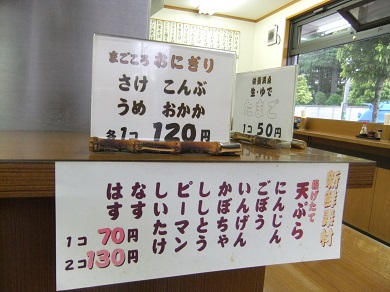 まごころ おにぎり
さけ こんぶ
うめ おかか
各1コ 120円
生・ゆで
たまご
1コ 50円
新鮮素材
揚げたて
天ぷら
にんじん
ごぼう
いんげん
かぼちゃ
ししとう
ピーマン
しいたけ
なす
はす
1コ 70円
2コ 130円